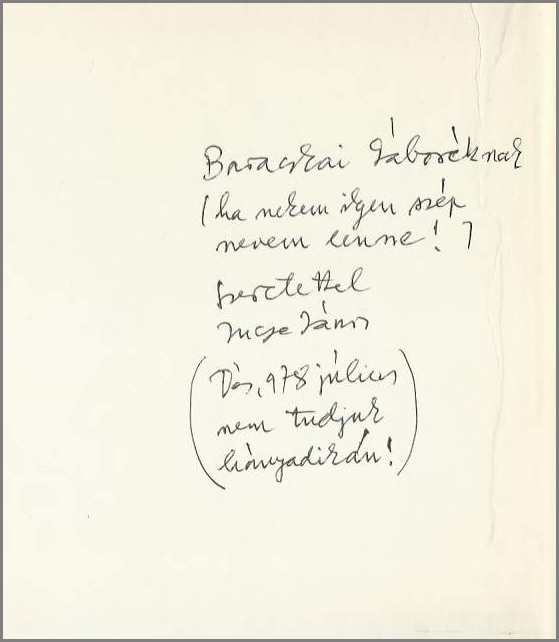 Baracskai Gáboréknak
(ha nekem ilyen szép
nevem lenne!)
Szeretettel
Incze János
(Dés, 978 július
nem tudjuk
hányadikán!)